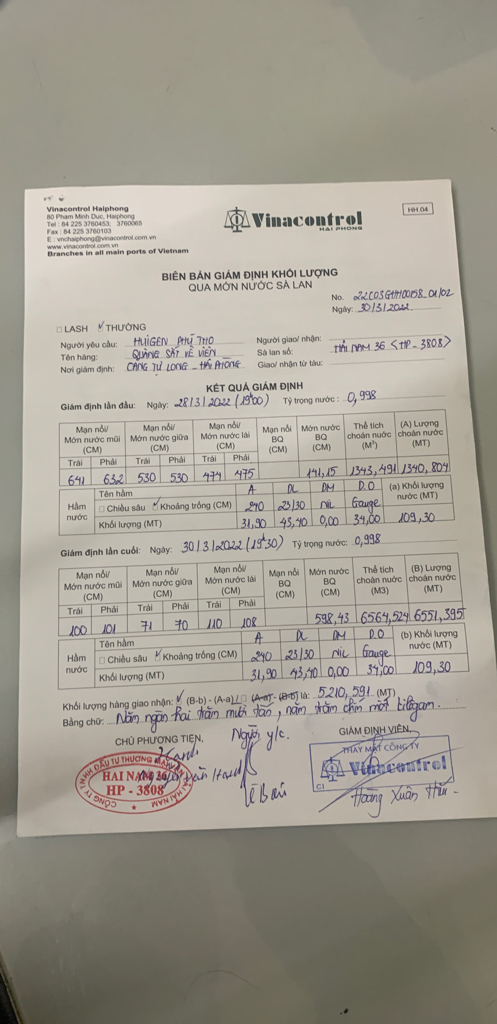 Vinacontrol Haiphong
80 Pham Minh Duc, Haiphong
Tel : 84 225 3760453; 3760065
Fax : 84 225 3760103
E : vnchaiphong@vinacontrol.com.vn
www.vinacontrol.com.vn
Branches in all main ports of Vietnam
Vinacontrol
HẢI PHÒNG
HH.04
BIÊN BẢN GIÁM ĐỊNH KHỐI LƯỢNG
QUA MỚN NƯỚC SÀ LAN
No. 22C03GHH00158_01/02
Ngày: 30/3/2022
□ LASH ✓ THƯỜNG
Người yêu cầu: HUIGEN PHÚ THỌ Người giao/ nhận:
Tên hàng: QUẶNG SẮT VÊ VIÊN Sà lan số: HẢI NAM 36 <HP-3808>
Nơi giám định: CẢNG TỰ LONG - HẢI PHÒNG Giao/ nhận từ tàu:
KẾT QUẢ GIÁM ĐỊNH
Giám định lần đầu: Ngày: 28/3/2022 (19h00) Tỷ trọng nước: 0,998
Mạn nổi/ Mớn nước mũi (CM) Mạn nổi/ Mớn nước giữa (CM) Mạn nổi/ Mớn nước lái (CM) Mạn nổi BQ (CM) Mớn nước BQ (CM) Thể tích choán nước (M³) (A) Lượng choán nước (MT)
Trái Phải Trái Phải Trái Phải
641 632 530 530 474 475 141,15 1343,491 1340,804
Hầm nước Tên hầm A DL DM D.O (a) Khối lượng nước (MT)
□ Chiều sâu ✓ Khoảng trống (CM) 240 25/30 Nil Gauge
Khối lượng (MT) 31,90 43,40 0,00 34,00 109,30
Giám định lần cuối: Ngày: 30/3/2022 (19h30) Tỷ trọng nước: 0,998
Mạn nổi/ Mớn nước mũi (CM) Mạn nổi/ Mớn nước giữa (CM) Mạn nổi/ Mớn nước lái (CM) Mạn nổi BQ (CM) Mớn nước BQ (CM) Thể tích choán nước (M3) (B) Lượng choán nước (MT)
Trái Phải Trái Phải Trái Phải
100 101 71 70 110 108 598,43 6564,524 6551,395
Hầm nước Tên hầm A DL DM D.O (b) Khối lượng nước (MT)
□ Chiều sâu ✓ Khoảng trống (CM) 240 25/30 Nil Gauge
Khối lượng (MT) 31,90 43,40 0,00 34,00 109,30
Khối lượng hàng giao nhận: ✓ (B-b) - (A-a) / □ (A-a) - (B-b) là: 5210,591 (MT)
Bằng chữ: Năm ngàn hai trăm mười tấn, năm trăm chín mốt kilôgam.
CHỦ PHƯƠNG TIỆN, Người y/c. GIÁM ĐỊNH VIÊN,
THAY MẶT CÔNG TY
Vinacontrol
C1
HAI NAM 36
HP - 3808
Lê Bái
Hoàng Xuân